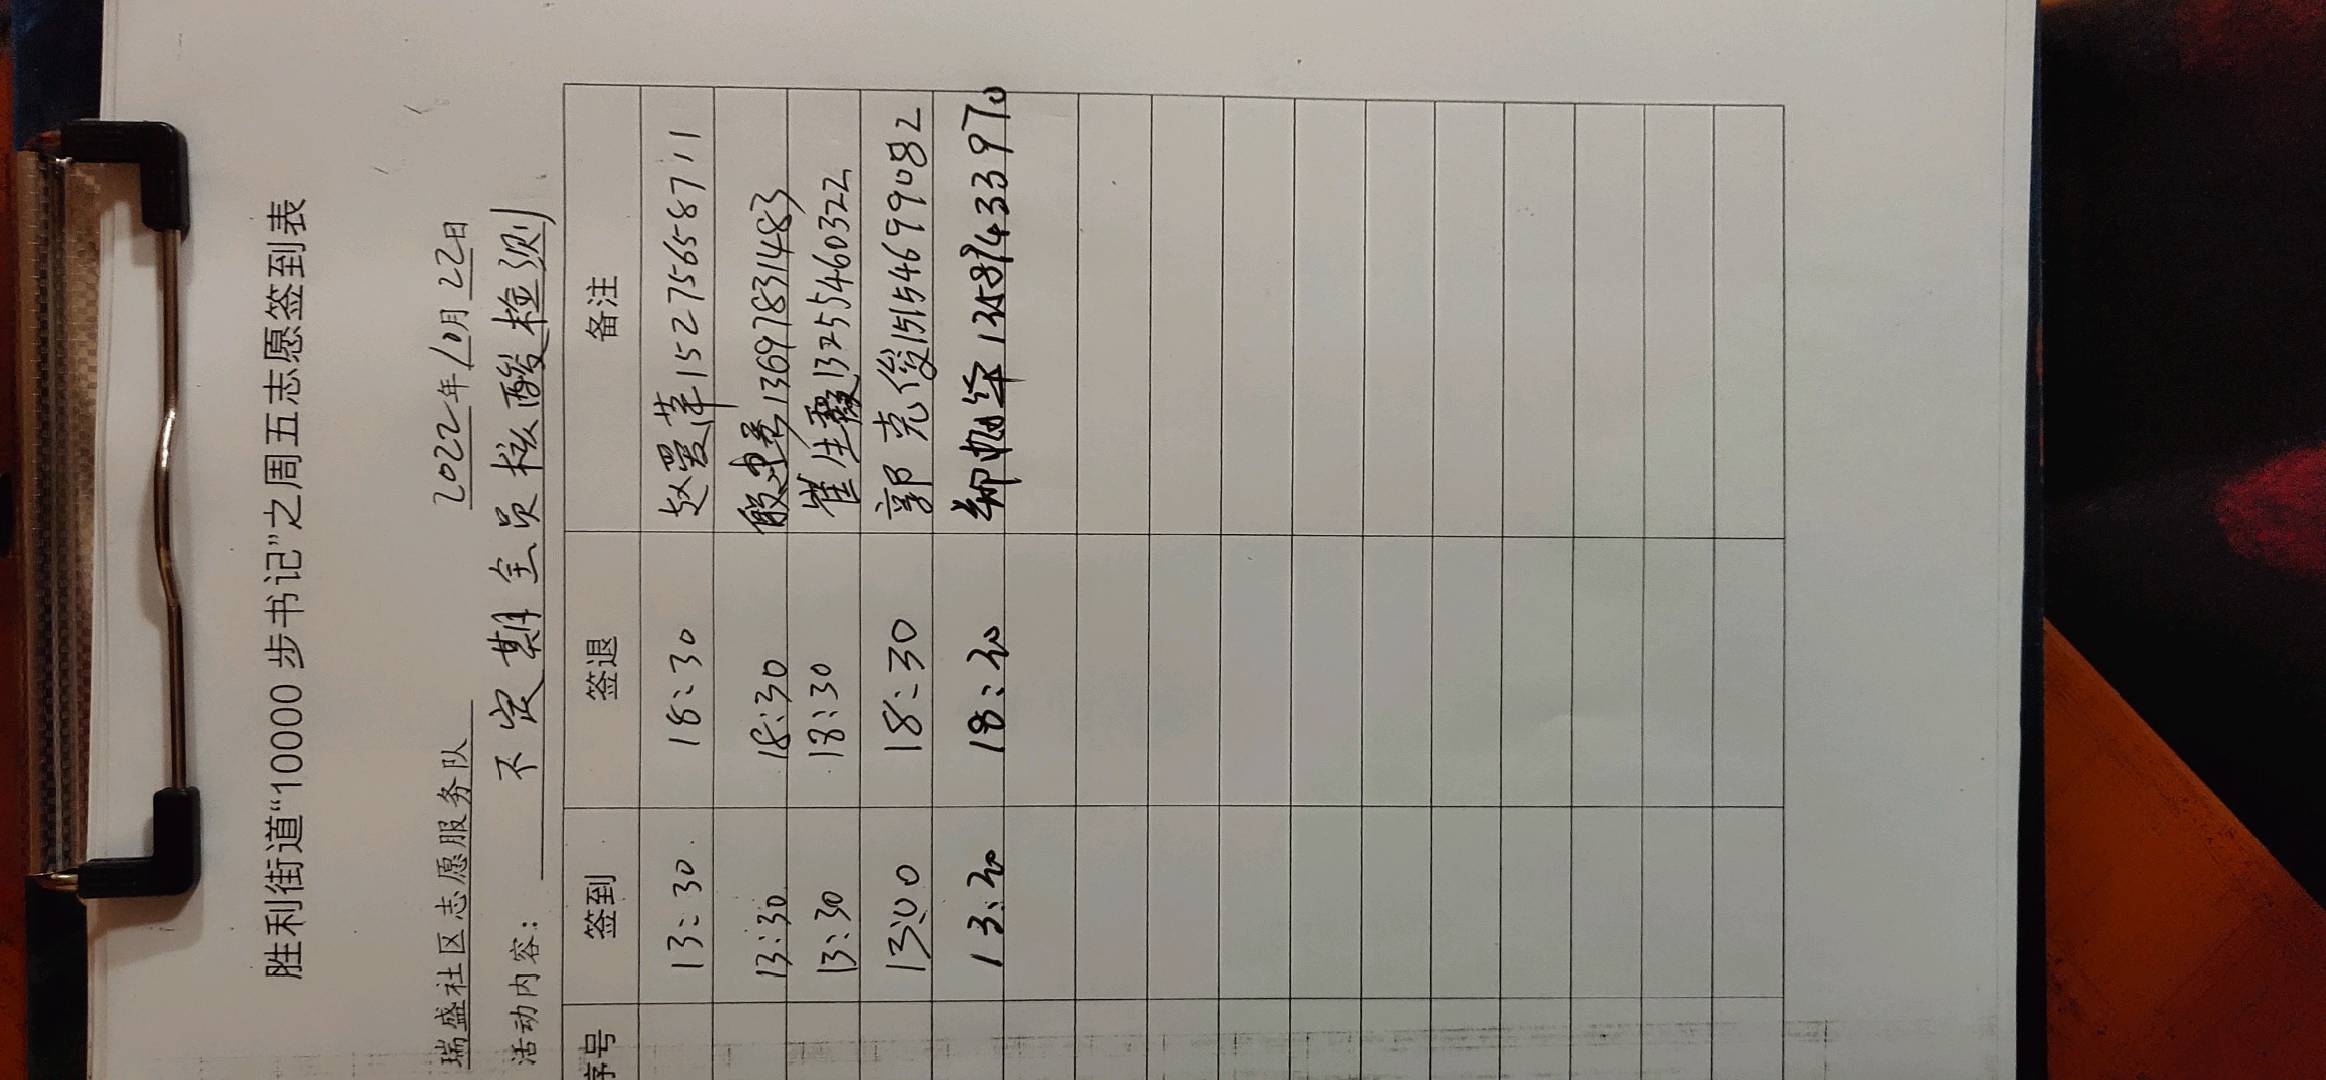 胜利街道“10000 步书记”之周五志愿签到表
瑞盛社区志愿服务队 2022年10月22日
活动内容： 不定期全员核酸检测
序号 签到 签退 备注
13:30 18:30 赵爱萍15275658711
13:30 18:30 殷 13697831483
13:30 18:30 崔生霞13255460322
13:00 18:30 郭克俊15154699082
13:30 18:30 13587433970